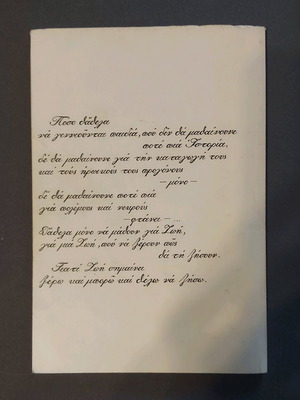 Πόσο θἄθελα
νά γεννιοῦνται παιδιά, πού δέν θά μαθαίνουνε
ποτέ πιά Ἱστορία,
δέ θά μαθαίνουνε γιά τήν καταγωγή τους
καί τούς ἥρωικούς τους προγόνους
— μόνο —
δέ θά μαθαίνουνε ποτέ πιά
γιά πολέμους καί νεκρούς
— φτάνει — ...
Θἄθελα μόνο νά μάθουν γιά Ζωή,
γιά μιά Ζωή, πού νά ξέρουν πῶς
θά τή ζήσουν.
Γιατί Ζωή σημαίνει
ξέρω καί μπορῶ καί θέλω νά ζήσω.